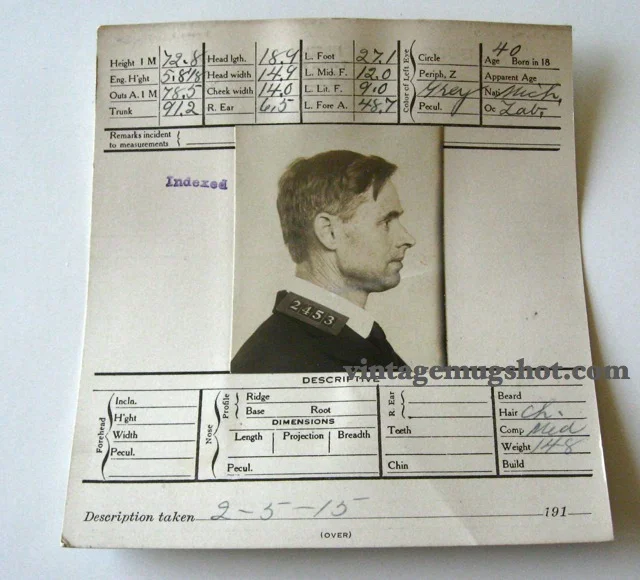 Height 1 M 72.8 Head lgth. 18.9 L. Foot 27.1 Circle Age 40 Born in 18
Eng. H'ght 5.8 1/8 Head width 14.9 L. Mid. F. 12.0 Periph, Z Apparent Age
Outs A. 1 M 78.5 Cheek width 14.0 L. Lit. F. 9.0 Grey Nati Mich,
Trunk 91.2 R. Ear 6.5 L. Fore A. 48.7 Pecul. Oc Lab.
Color of Left Eye
Remarks incident
to measurements
Indexed
2453
vintagemugshot.com
DESCRIPTIVE
Forehead
Incln.
H'ght
Width
Pecul.
Nose
Profile
Ridge
Base Root
DIMENSIONS
Length Projection Breadth
Pecul.
R. Ear
Teeth
Chin
Beard
Hair Ch.
Comp Med
Weight 148
Build
Description taken 2-5-15 191
(OVER)